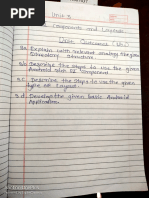 Unit 3
Components and Layouts
Unit Outcomes (UO)
3a. Explain with relevant analogy the given
Directory Structure.
3b. Describe the steps to use the given
Android rich UI Component
3c. Describe the Steps to use the given
type of Layout.
3d. Develop the given basic Android
Application.